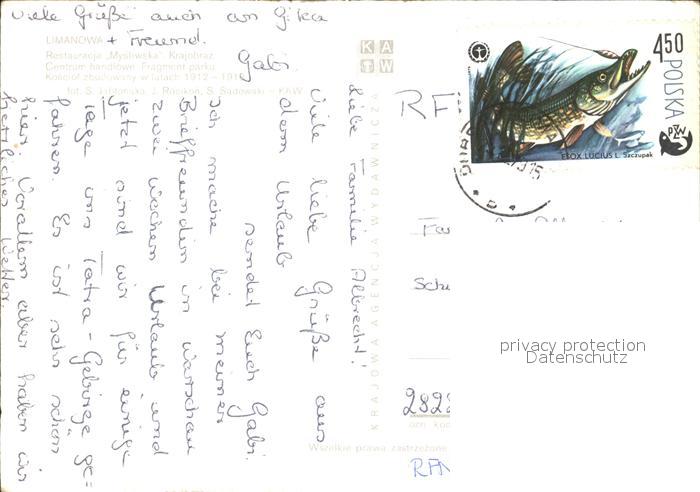 Viele Grüße auch an Gitta
+ Freund.
Gabi.
LIMANOWA
Restauracja „Myśliwska". Krajobraz
Centrum handlowe. Fragment parku
Kościół zbudowany w latach 1912 – 191
fot. S. J. Rosikoń, S. Sadowski – KAW
KAW
KRAJOWA AGENCJA WYDAWNICZA
Liebe Familie Albrecht!
Viele liebe Grüße aus
dem Urlaub
sendet Euch Gabi.
Ich mache bei meiner
Brieffreundin in Warschau
zwei Wochen Urlaub und
jetzt sind wir für einige
Tage ins Tatra-Gebirge ge=
fahren. Es ist sehr schön
hier. Vorallem aber haben wir
herrliches Wetter.
4,50
POLSKA
PZW
ESOX LUCIUS L. Szczupak
RF
Fa
Schu
282
RFN
Wszelkie prawa zastrzeżone
privacy protection
Datenschutz